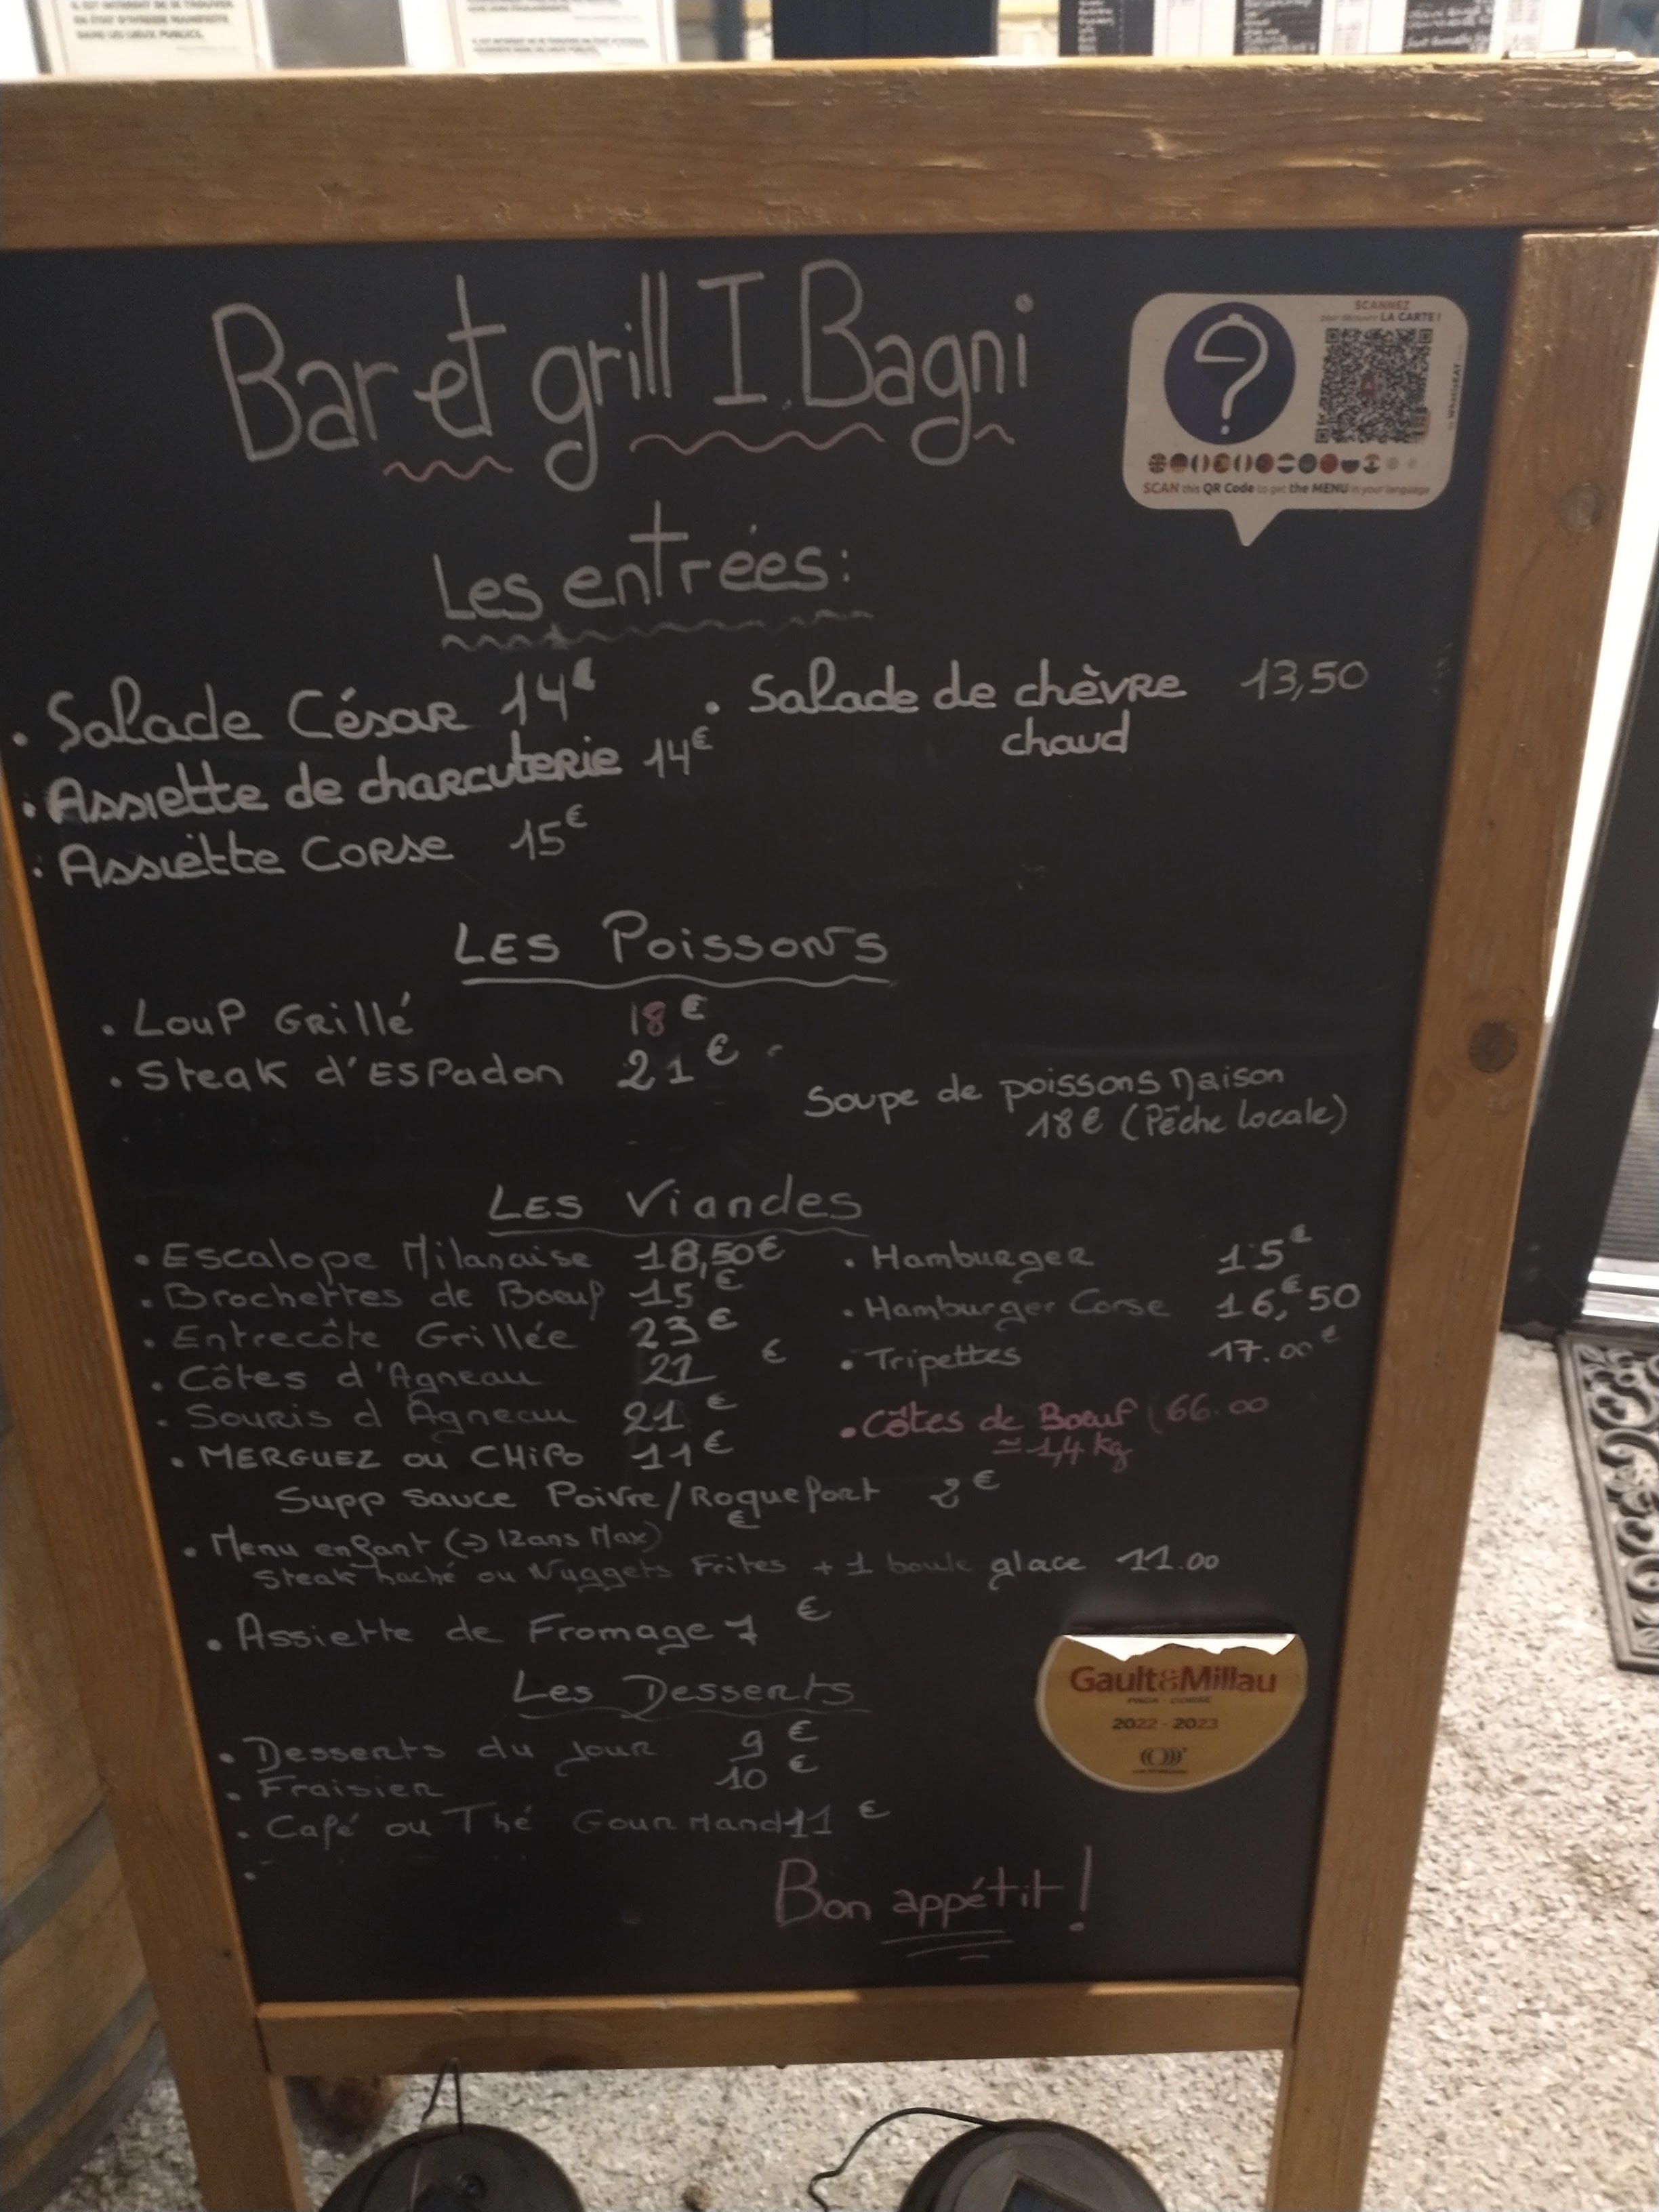 IL EST INTERDIT DE SE TROUVER
EN ÉTAT D'IVRESSE MANIFESTE
DANS LES LIEUX PUBLICS.
Bar et grill I Bagni
SCANNEZ
pour découvrir LA CARTE !
SCAN this QR Code to get the MENU in your language
Les entrées:
• Salade César 14€
• Salade de chèvre chaud 13,50
• Assiette de charcuterie 14€
• Assiette Corse 15€
LES Poissons
• Loup Grillé 18€
• Steak d'Espadon 21€
Soupe de poissons Maison
18€ (Pêche locale)
LES Viandes
• Escalope Milanaise 18,50€
• Hamburger 15€
• Brochettes de Boeuf 15€
• Hamburger Corse 16,€50
• Entrecôte Grillée 23€
• Tripettes 17.00€
• Côtes d'Agneau 21 €
• Souris d Agneau 21€
• Côtes de Boeuf 66.00
≃ 1,4 kg
• MERGUEZ ou CHiPo 11€
Supp sauce Poivre/Roquefort 2€
• Menu enfant (→ 12ans Max) €
Steak haché ou Nuggets Frites + 1 boule glace 11.00
• Assiette de Fromage 7 €
Les Desserts
Gault&Millau
PACA - CORSE
2022 - 2023
• Desserts du jour 9 €
• Fraisier 10 €
• Café ou Thé Gourmand 11 €
Bon appétit !